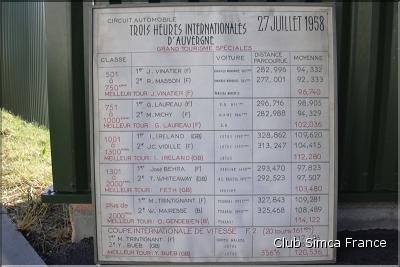 CIRCUIT AUTOMOBILE
27 JUILLET 1958
TROIS HEURES INTERNATIONALES
D'AUVERGNE
GRAND TOURISME SPÉCIALES
CLASSE VOITURE DISTANCE PARCOURUE MOYENNE
501 à 750 cm3
1er J. VINATIER (F) 282,996 94,332
2e R. MASSON (F) 277,001 92,333
MEILLEUR TOUR: J. VINATIER (F) 96,740
751 à 1000 cm3
1er G. LAUREAU (F) 296,716 98,905
2e M. MICHY (F) 282,988 94,329
MEILLEUR TOUR: G. LAUREAU (F) 102,036
1001 à 1300 cm3
1er I. IRELAND (GB) LOTUS 328,862 109,620
2e JC. VIDILLE (F) LOTUS 313,247 104,415
MEILLEUR TOUR: I. IRELAND (GB) LOTUS 112,280
1301
1er José BEHRA (F) 293,470 97,823
2e T. WHITEAWAY (GB) 292,523 97,507
MEILLEUR TOUR: FETH (GB) 103,480
plus de 2000
1er M. TRINTIGNANT (F) FERRARI 327,843 109,281
2e W. MAIRESSE (B) FERRARI 325,468 108,489
MEILLEUR TOUR: O. GENDEBIEN (B) FERRARI 114,122
COUPE INTERNATIONALE DE VITESSE F.2 (20 tours
1er M. TRINTIGNANT (F)
2e Y. BUEB (GB) LOTUS
MEILLEUR TOUR: Y. BUEB (GB) LOTUS 120,536
Club Simca France